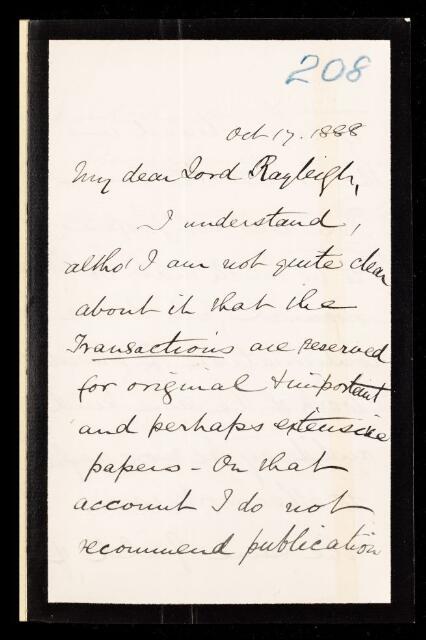 208
Oct 17. 1888
My dear Lord Rayleigh,
I understand,
altho' I am not quite clear
about it that the
Transactions are reserved
for original & important
and perhaps extensive
papers - On that
account I do not
recommend publication